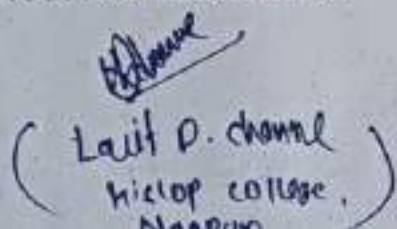 (Lalit D. channe)
hislop college,
Nagpur